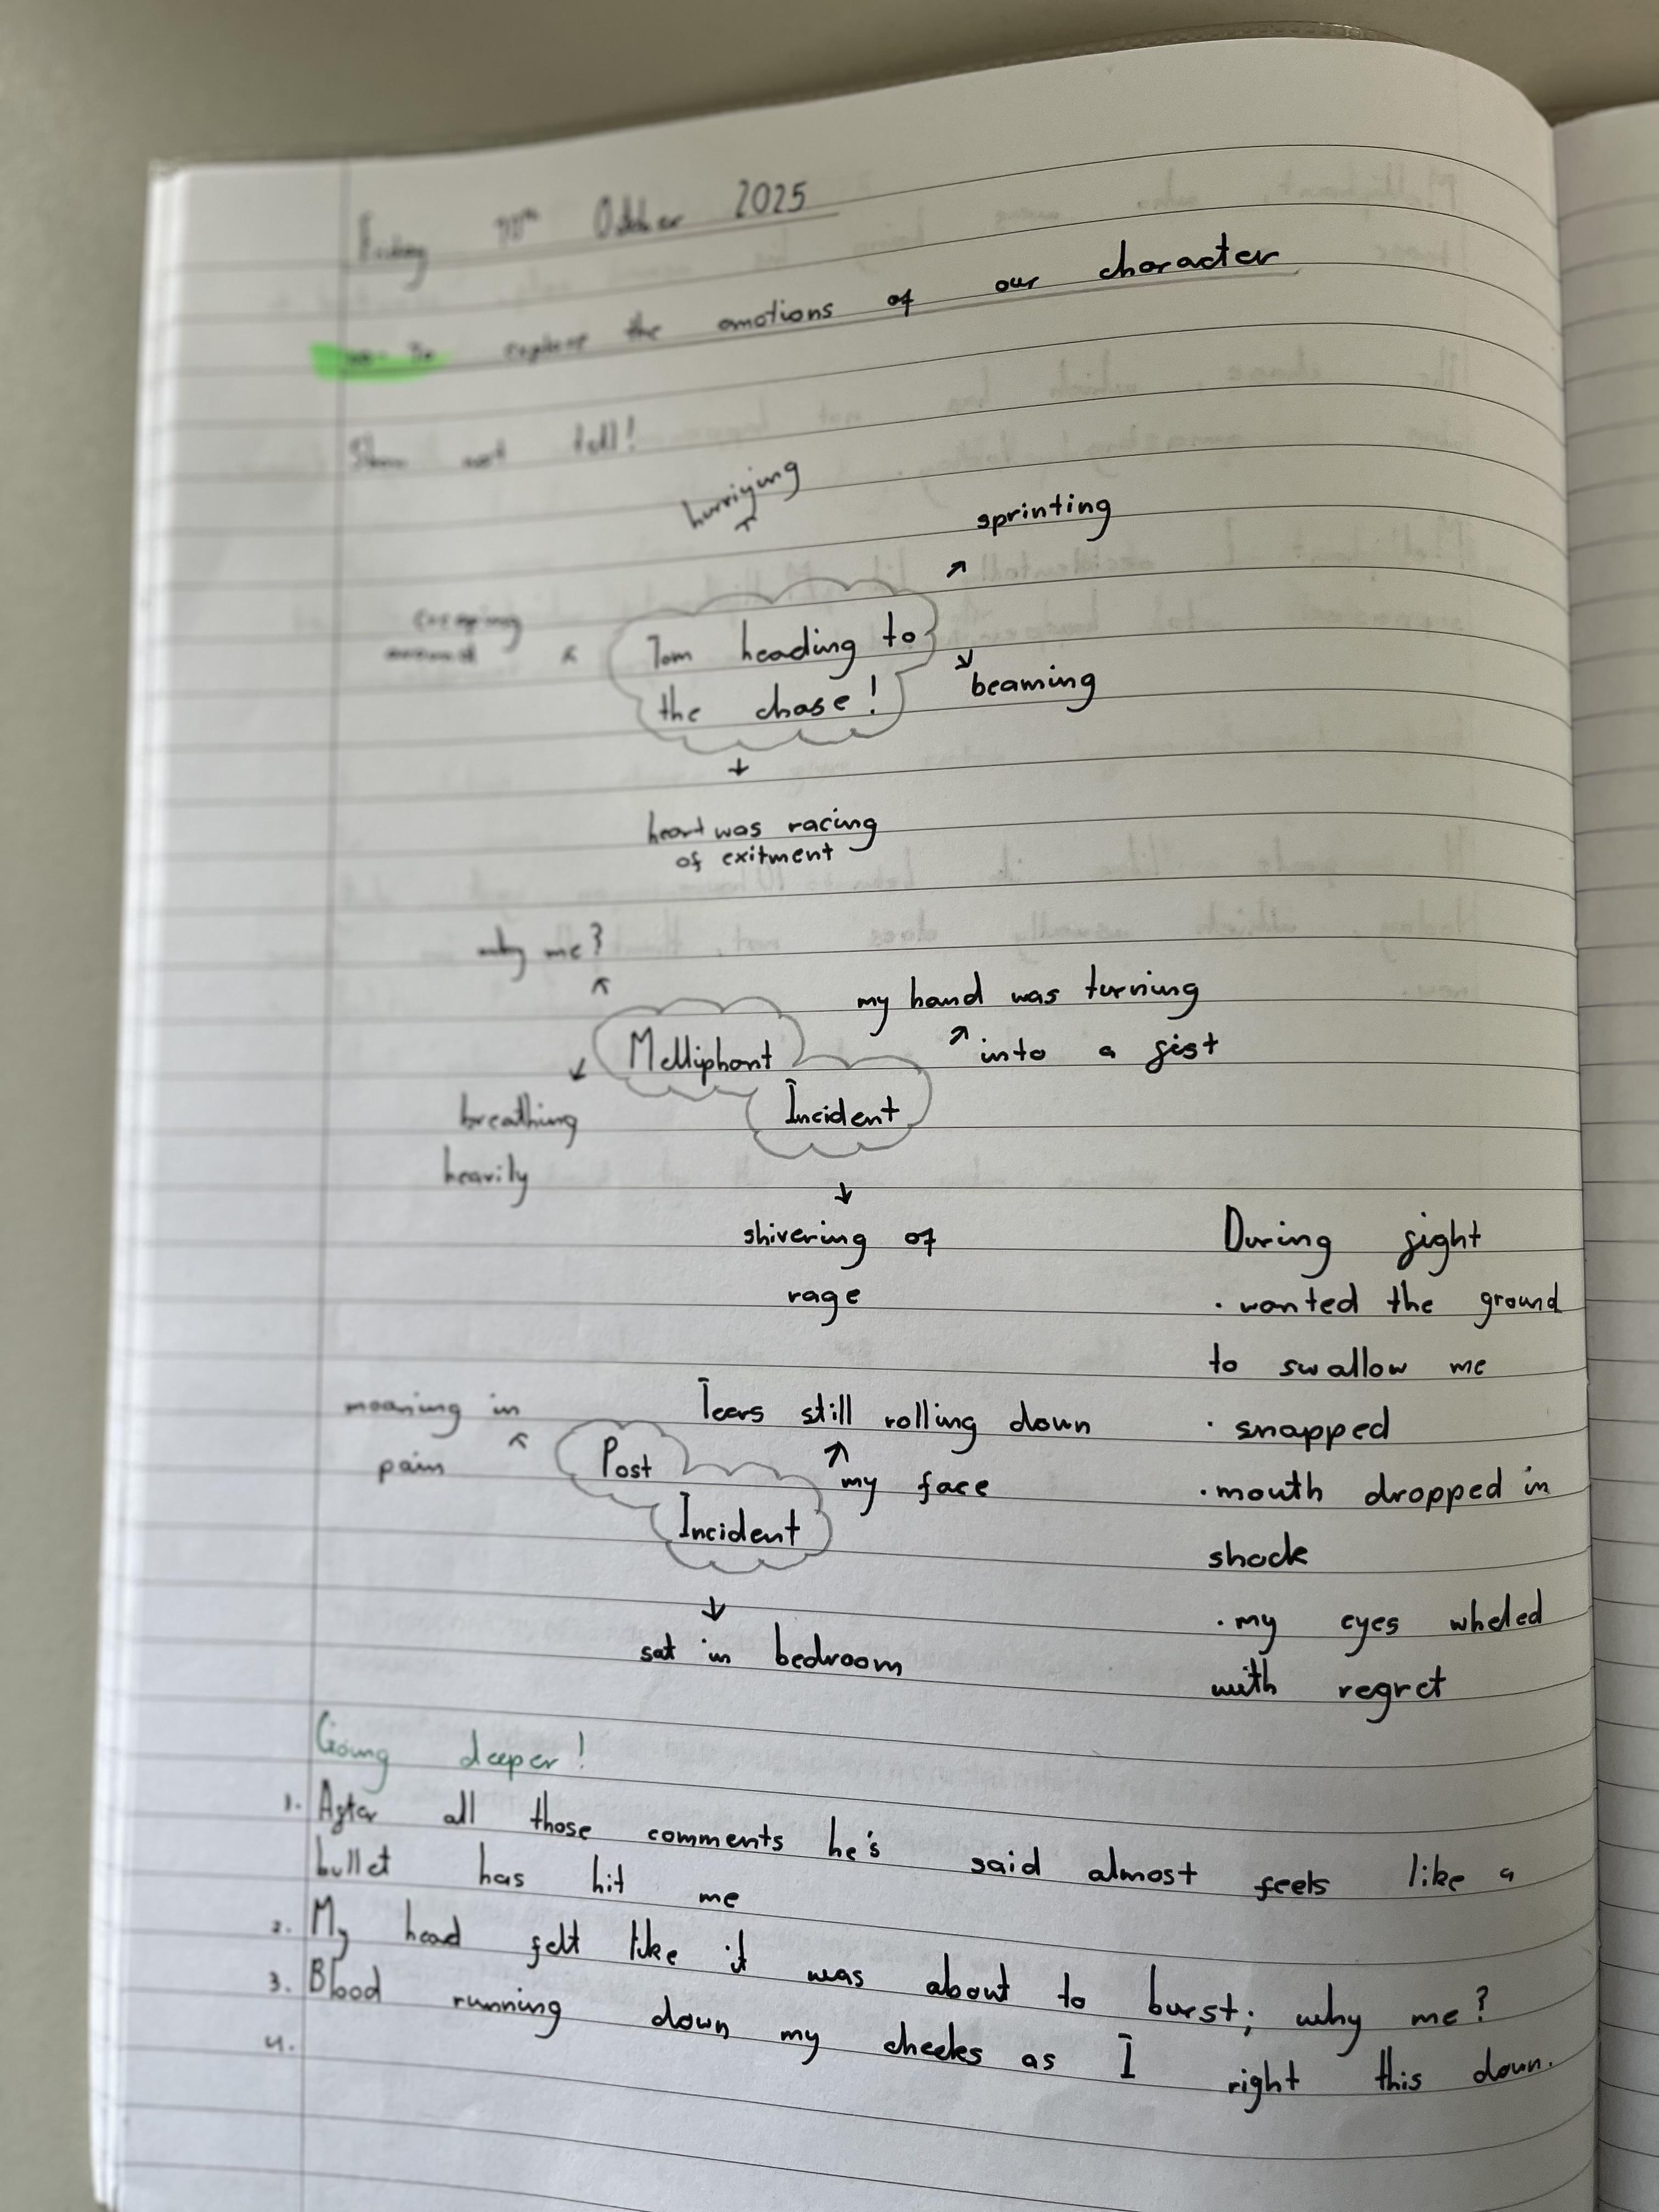 Friday October 2025
explore the emotions of our character
Show not tell!
hurriying
sprinting
creeping
Tom heading to
the chase!
beaming
heart was racing
of exitment
why me?
my hand was turning
into a fist
Melliphant
Incident
breathing
heavily
shivering of
rage
During fight
· wanted the ground
to swallow me
· snapped
· mouth dropped in
shock
· my eyes wheled
with regret
moaning in
pain
Tears still rolling down
my face
Post
Incident
sat in bedroom
Going deeper!
1. After all those comments he's said almost feels like a
bullet has hit me
2. My head felt like it was about to burst; why me?
3. Blood running down my cheeks as I right this down.
4.